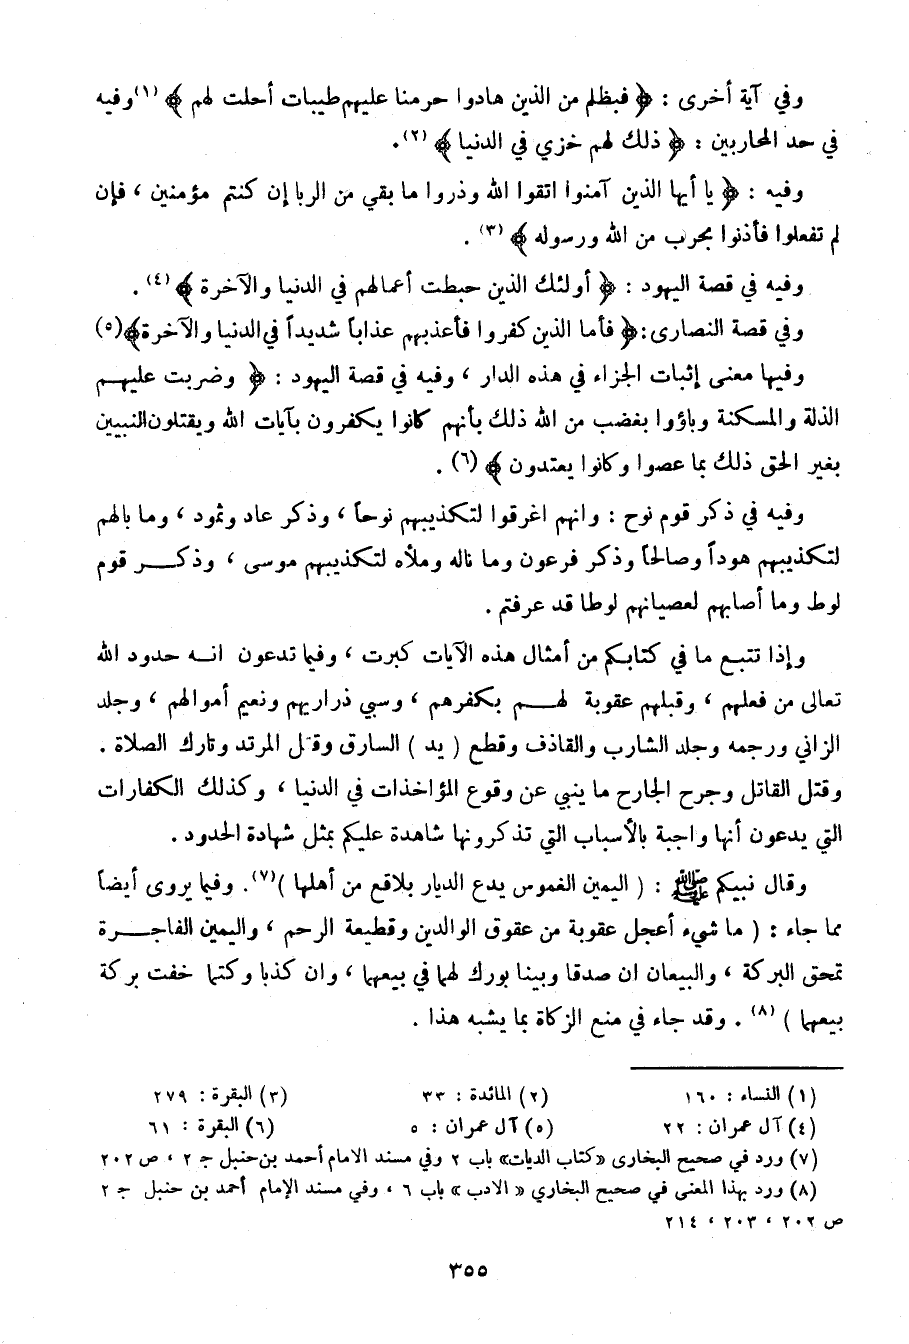 وفي آية أخرى : ﴿ فبظلم من الذين هادوا حرمنا عليهم طيبات أحلت لهم ﴾ (١) وفيه
في حد المحاربين : ﴿ ذلك لهم خزي في الدنيا ﴾ (٢).
وفيه : ﴿ يا أيها الذين آمنوا اتقوا الله وذروا ما بقي من الربا إن كنتم مؤمنين ، فإن
لم تفعلوا فأذنوا بحرب من الله ورسوله ﴾ (٣) .
وفيه في قصة اليهود : ﴿ أولئك الذين حبطت أعمالهم في الدنيا والآخرة ﴾ (٤) .
وفي قصة النصارى : ﴿ فأما الذين كفروا فأعذبهم عذاباً شديداً في الدنيا والآخرة ﴾ (٥)
وفيها معنى إثبات الجزاء في هذه الدار ، وفيه في قصة اليهود : ﴿ وضربت عليهم
الذلة والمسكنة وباؤوا بغضب من الله ذلك بأنهم كانوا يكفرون بآيات الله ويقتلون النبيين
بغير الحق ذلك بما عصوا وكانوا يعتدون ﴾ (٦) .
وفيه في ذكر قوم نوح : وانهم اغرقوا لتكذيبهم نوحاً ، وذكر عاد وثمود ، وما بالهم
لتكذيبهم هوداً وصالحاً وذكر فرعون وما ناله وملأه لتكذيبهم موسى ، وذكر قوم
لوط وما أصابهم لعصيانهم لوطا قد عرفتم .
وإذا تتبع ما في كتابكم من أمثال هذه الآيات كبرت ، وفيما تدعون انه حدود الله
تعالى من فعلهم ، وقبلهم عقوبة لهم بكفرهم ، وسبي ذراريهم ونعيم أموالهم ، وجلد
الزاني ورجمه وجلد الشارب والقاذف وقطع ( يد ) السارق وقتل المرتد وتارك الصلاة .
وقتل القاتل وجرح الجارح ما ينبي عن وقوع المؤاخذات في الدنيا ، وكذلك الكفارات
التي يدعون أنها واجبة بالأسباب التي تذكرونها شاهدة عليكم بمثل شهادة الحدود .
وقال نبيكم ﷺ : ( اليمين الغموس يدع الديار بلاقع من أهلها ) (٧). وفيما يروى أيضاً
مما جاء : ( ما شيء أعجل عقوبة من عقوق الوالدين وقطيعة الرحم ، واليمين الفاجرة
تمحق البركة ، والبيعان ان صدقا وبينا بورك لهما في بيعهما ، وان كذبا وكتما خفت بركة
بيعهما ) (٨) . وقد جاء في منع الزكاة بما يشبه هذا .
(١) النساء : ١٦٠ (٢) المائدة : ٣٣ (٣) البقرة : ٢٧٩
(٤) آل عمران : ٢٢ (٥) آل عمران : ٥ (٦) البقرة : ٦١
(٧) ورد في صحيح البخارى «كتاب الديات» باب ٢ وفي مسند الامام أحمد بن حنبل جـ ٢ ، ص ٢٠٢
(٨) ورد بهذا المعنى في صحيح البخاري « الادب » باب ٦ ، وفي مسند الإمام أحمد بن حنبل جـ ٢
ص ٢٠٢ ، ٢٠٣ ، ٢١٤
٣٥٥